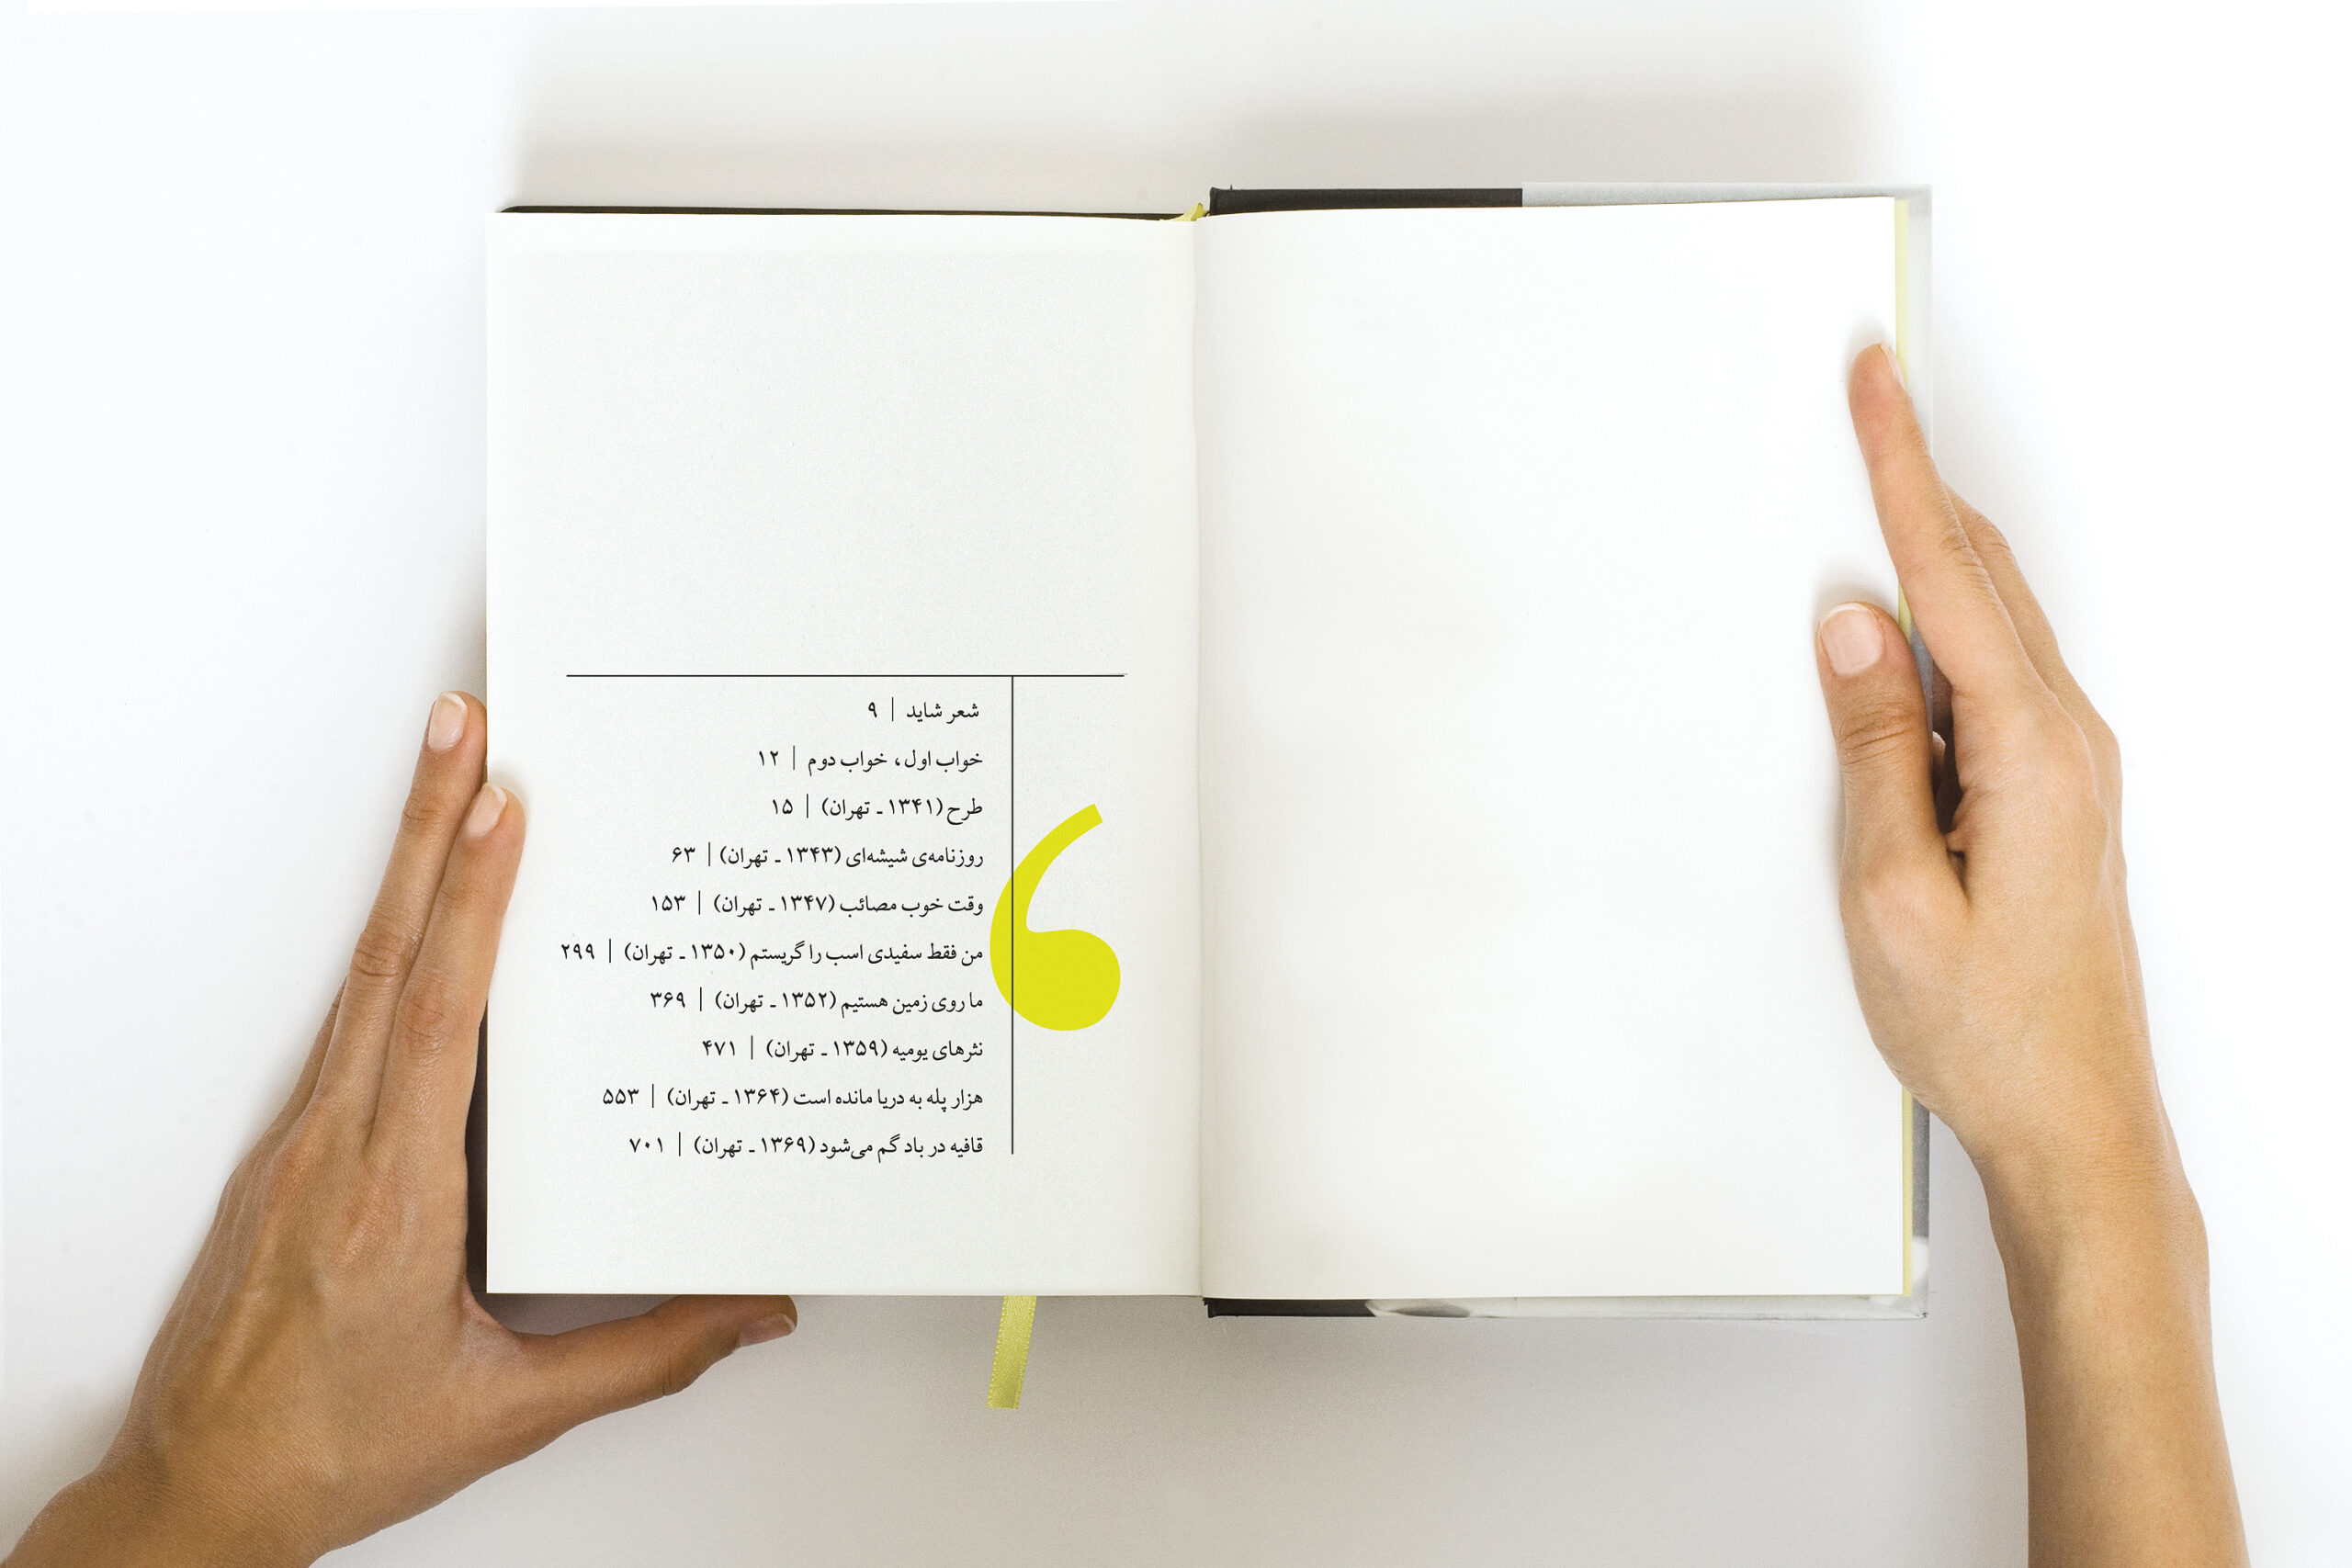 شعر شاید | ۹
خواب اول، خواب دوم | ۱۲
طرح (۱۳۴۱ ـ تهران) | ۱۵
روزنامه‌ی شیشه‌ای (۱۳۴۳ ـ تهران) | ۶۳
وقت خوب مصائب (۱۳۴۷ ـ تهران) | ۱۵۳
من فقط سفیدی اسب را گریستم (۱۳۵۰ ـ تهران) | ۲۹۹
ما روی زمین هستیم (۱۳۵۲ ـ تهران) | ۳۶۹
نثرهای یومیه (۱۳۵۹ ـ تهران) | ۴۷۱
هزار پله به دریا مانده است (۱۳۶۴ ـ تهران) | ۵۵۳
قافیه در باد گم می‌شود (۱۳۶۹ ـ تهران) | ۷۰۱